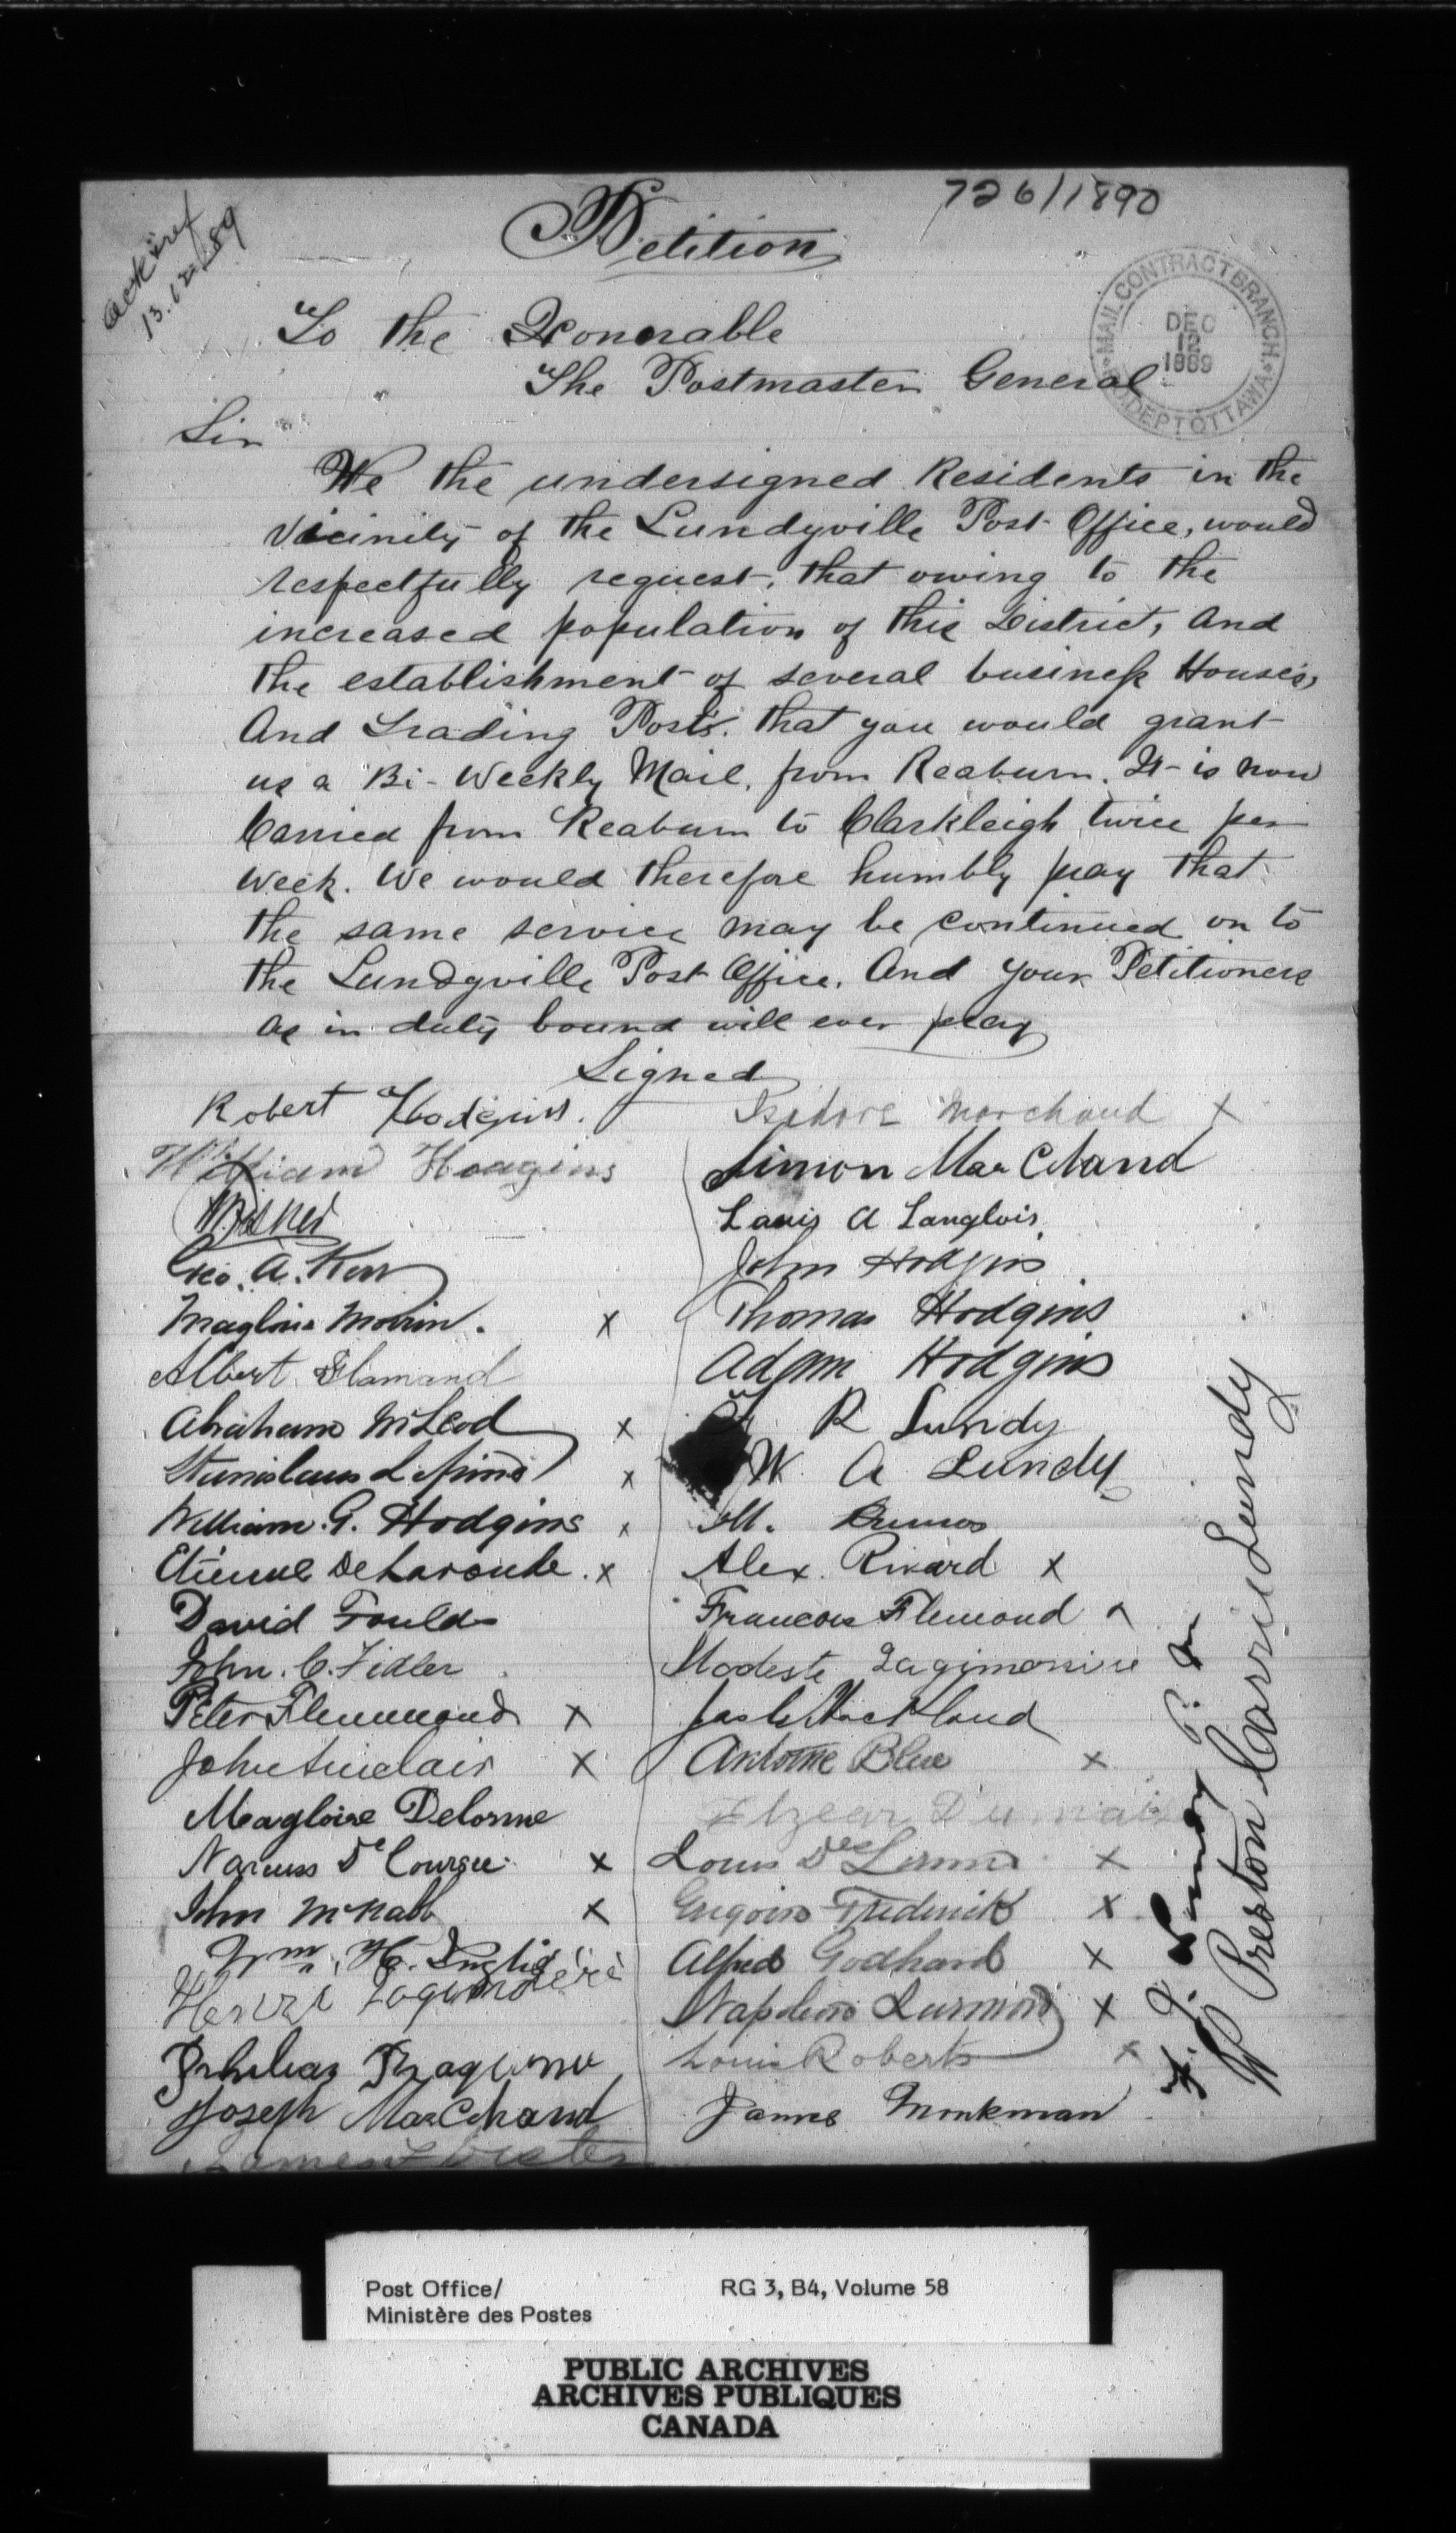 726/1890
ack & ref
13.12.89
Petition
To the Honorable
The Postmaster General
MAIL CONTRACT BRANCH.
DEC
12
1889
P.O. DEPT OTTAWA
Sir
We the undersigned Residents in the
Vicinity of the Lundyville Post Office, would
respectfully request, that owing to the
increased population of this District, And
the establishment of several business Houses,
And Trading Posts. that you would grant
us a Bi-Weekly Mail, from Reaburn. It is now
Carried from Reaburn to Clarkleigh twice per
week. We would therefore humbly pray that
the same service may be continued on to
the Lundyville Post Office, And your Petitioners
as in duty bound will ever pray
Signed
Robert Hodgins.
William Hodgins
Geo. A. Kerr
Magloire Morin. x
Albert Flamand
Abraham McLeod x
Stanislaus x
William. G. Hodgins x
Etienne DeLaronde. x
David Foulds
John. C. Fidler
Peter Flemmond x
John Sinclair x
Magloire Delorme
Narcuss De x
John McNabb x
Wm. H.
Lagimodiere
Joseph MarChand
Isidore Marchand x
Simon MarChand
Louis A Langlois.
John Hodgins
Thomas Hodgins
Adam Hodgins
R Lundy
W A Lundy
M.
Alex. Rivard x
Francois Flemond
Modeste Lagimoniere
Antoine Blue x
Elzear Dumais
Louis x
Gregoire Frederick x
Alfred Godhard x
Napoleon x
Louis Roberts x
James Monkman
H. J. Lundy P. M
W Preston Carrie Lundy
Post Office/
Ministère des Postes
RG 3, B4, Volume 58
PUBLIC ARCHIVES
ARCHIVES PUBLIQUES
CANADA